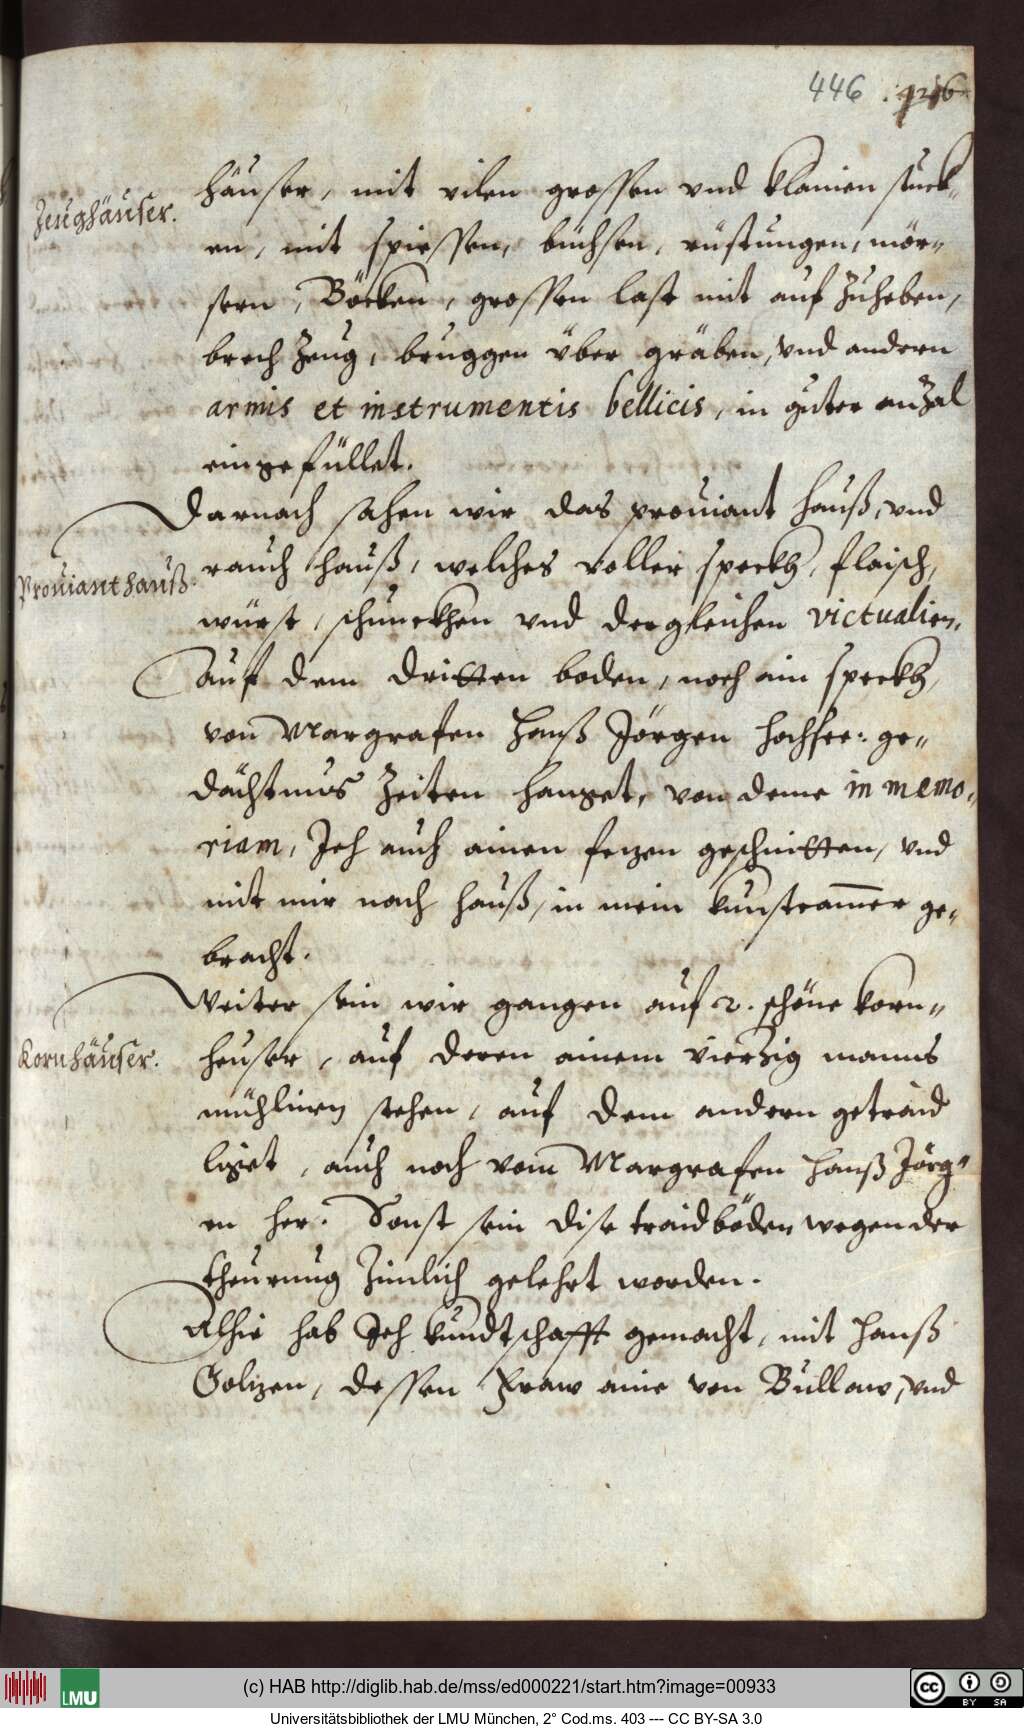 446 .
häuser, mit vilen grossen vnd klainen stuck-
Zeughäuser.
en, mit spiessen, büchsen, rüstungen, mör-
sern, Böcken, grossen last mit auf Zuheben,
brech Zeug, bruggen über gräben, vnd andern
armis et instrumentis bellicis, in guter anZal
eingefüllet.
Darnach sahen wir das prouiant hauß, vnd
Prouianthauß.
rauch hauß, welches voller speckh, flaisch,
würst, schunckhen vnd dergleichen victualien.
Auf dem dritten boden, noch ain speckh,
von Margrafen Hanß Jörgen hochsee: ge-
dächtnus Zeiten hanget, von deme in memo-
riam, Jch auch ainen fezen geschnitten, vnd
mit mir nach hauß, in mein kunstcam̅er ge-
bracht.
Weiter sein wir gangen auf 2. schöne korn-
Kornhäuser.
heuser, auf deren ainem vierzig manns
mühlinen stehen, auf dem andern getraid
liget, auch noch vom Margrafen Hanß Jörg-
en her. Sonst sein dise traidböden wegen der
theurung Zimlich gelehrt worden.
Alhie hab Jch kundtschafft gemacht, mit Hanß
Golizen, dessen Fraw aine von Bullaw, vnd
(c) HAB http://diglib.hab.de/mss/ed000221/start.htm?image=00933
LMU
cc BY SA
Universitätsbibliothek der LMU München, 2° Cod.ms. 403 --- CC BY-SA 3.0